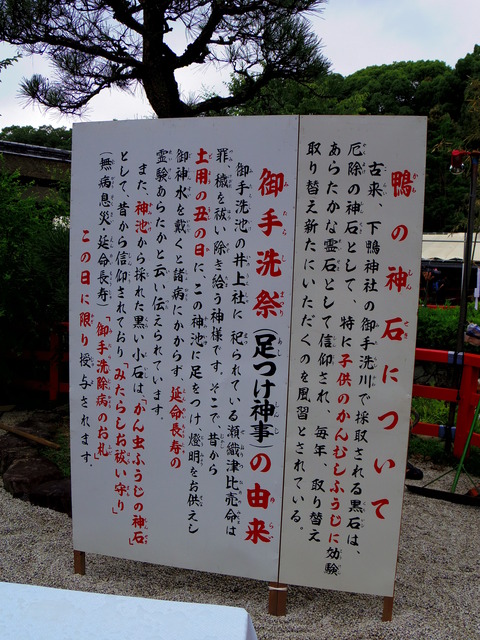 鴨の神石について
古来、下鴨神社の御手洗川で採取される黒石は、
厄除の神石として、特に子供のかんむしふうじに効験
あらたかな霊石として信仰され、毎年、取り替え
取り替え新たにいただくのを風習とされている。
御手洗祭(足つけ神事)の由来
御手洗池の井上社に祀られている瀬織津比売命は
罪、穢を祓い除き給う神様です。そこで昔から
土用の丑の日に、この神池に足をつけ、燈明をお供えし
御神水を戴くと諸病にかからず、延命長寿の
霊験あらたかと云い伝えられています。
また、神池から採れた黒い小石は「かん虫ふうじの神石」
として、昔から信仰されており、みたらしお祓い守り」
(無病息災・延命長寿)「御手洗除病のお札」
この日に限り授与されます。